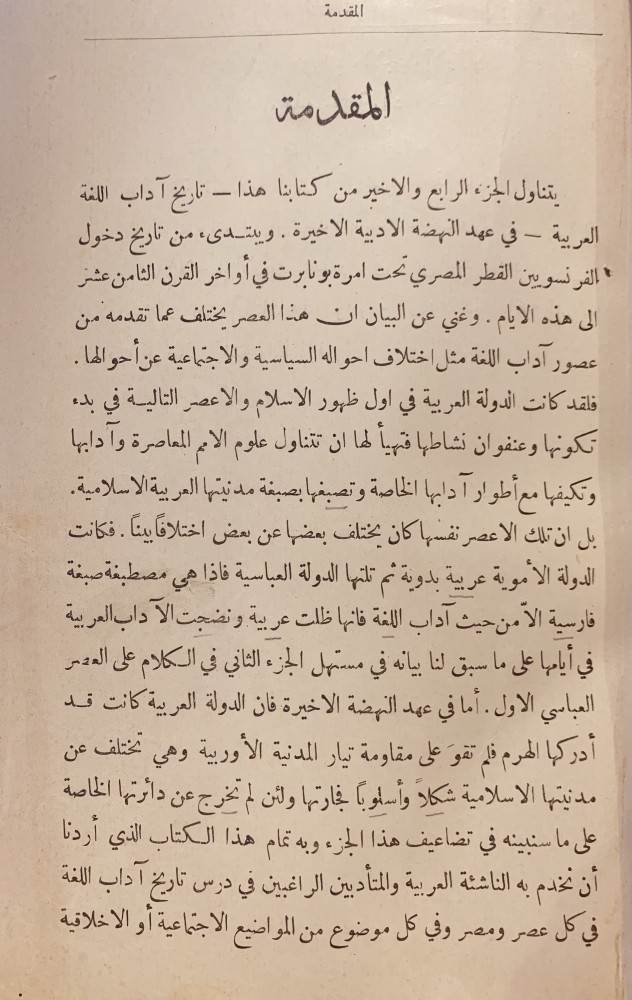 المقدمة
المقدمة
يتناول الجزء الرابع والاخير من كتابنا هذا — تاريخ آداب اللغة
العربية — في عهد النهضة الادبية الاخيرة . ويبتدىء من تاريخ دخول
الفرنسويين القطر المصري تحت امرة بونابرت في أواخر القرن الثامن عشر
الى هذه الايام . وغني عن البيان ان هذا العصر يختلف عما تقدمه من
عصور آداب اللغة مثل اختلاف احواله السياسية والاجتماعية عن أحوالها .
فلقد كانت الدولة العربية في اول ظهور الاسلام والاعصر التالية في بدء
تكونها وعنفوان نشاطها فتهيأ لها ان تتناول علوم الامم المعاصرة وآدابها
وتكيفها مع أطوار آدابها الخاصة وتصبغها بصبغة مدنيتها العربية الاسلامية .
بل ان تلك الاعصر نفسها كان يختلف بعضها عن بعض اختلافاً بيناً . فكانت
الدولة الأموية عربية بدوية ثم تلتها الدولة العباسية فاذا هي مصطبغة صبغة
فارسية الاّ من حيث آداب اللغة فانها ظلت عربية ونضجت الآداب العربية
في أيامها على ما سبق لنا بيانه في مستهل الجزء الثاني في الكلام على العصر
العباسي الاول . أما في عهد النهضة الاخيرة فان الدولة العربية كانت قد
أدركها الهرم فلم تقوَ على مقاومة تيار المدنية الأوربية وهي تختلف عن
مدنيتها الاسلامية شكلاً وأسلوباً فجارتها ولئن لم تخرج عن دائرتها الخاصة
على ما سنبينه في تضاعيف هذا الجزء وبه تمام هذا الكتاب الذي أردنا
أن نخدم به الناشئة العربية والمتأدبين الراغبين في درس تاريخ آداب اللغة
في كل عصر ومصر وفي كل موضوع من المواضيع الاجتماعية أو الاخلاقية